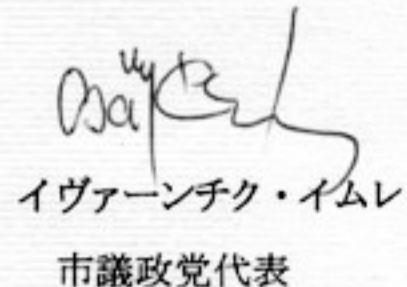 イヴァーンチク・イムレ
市議政党代表